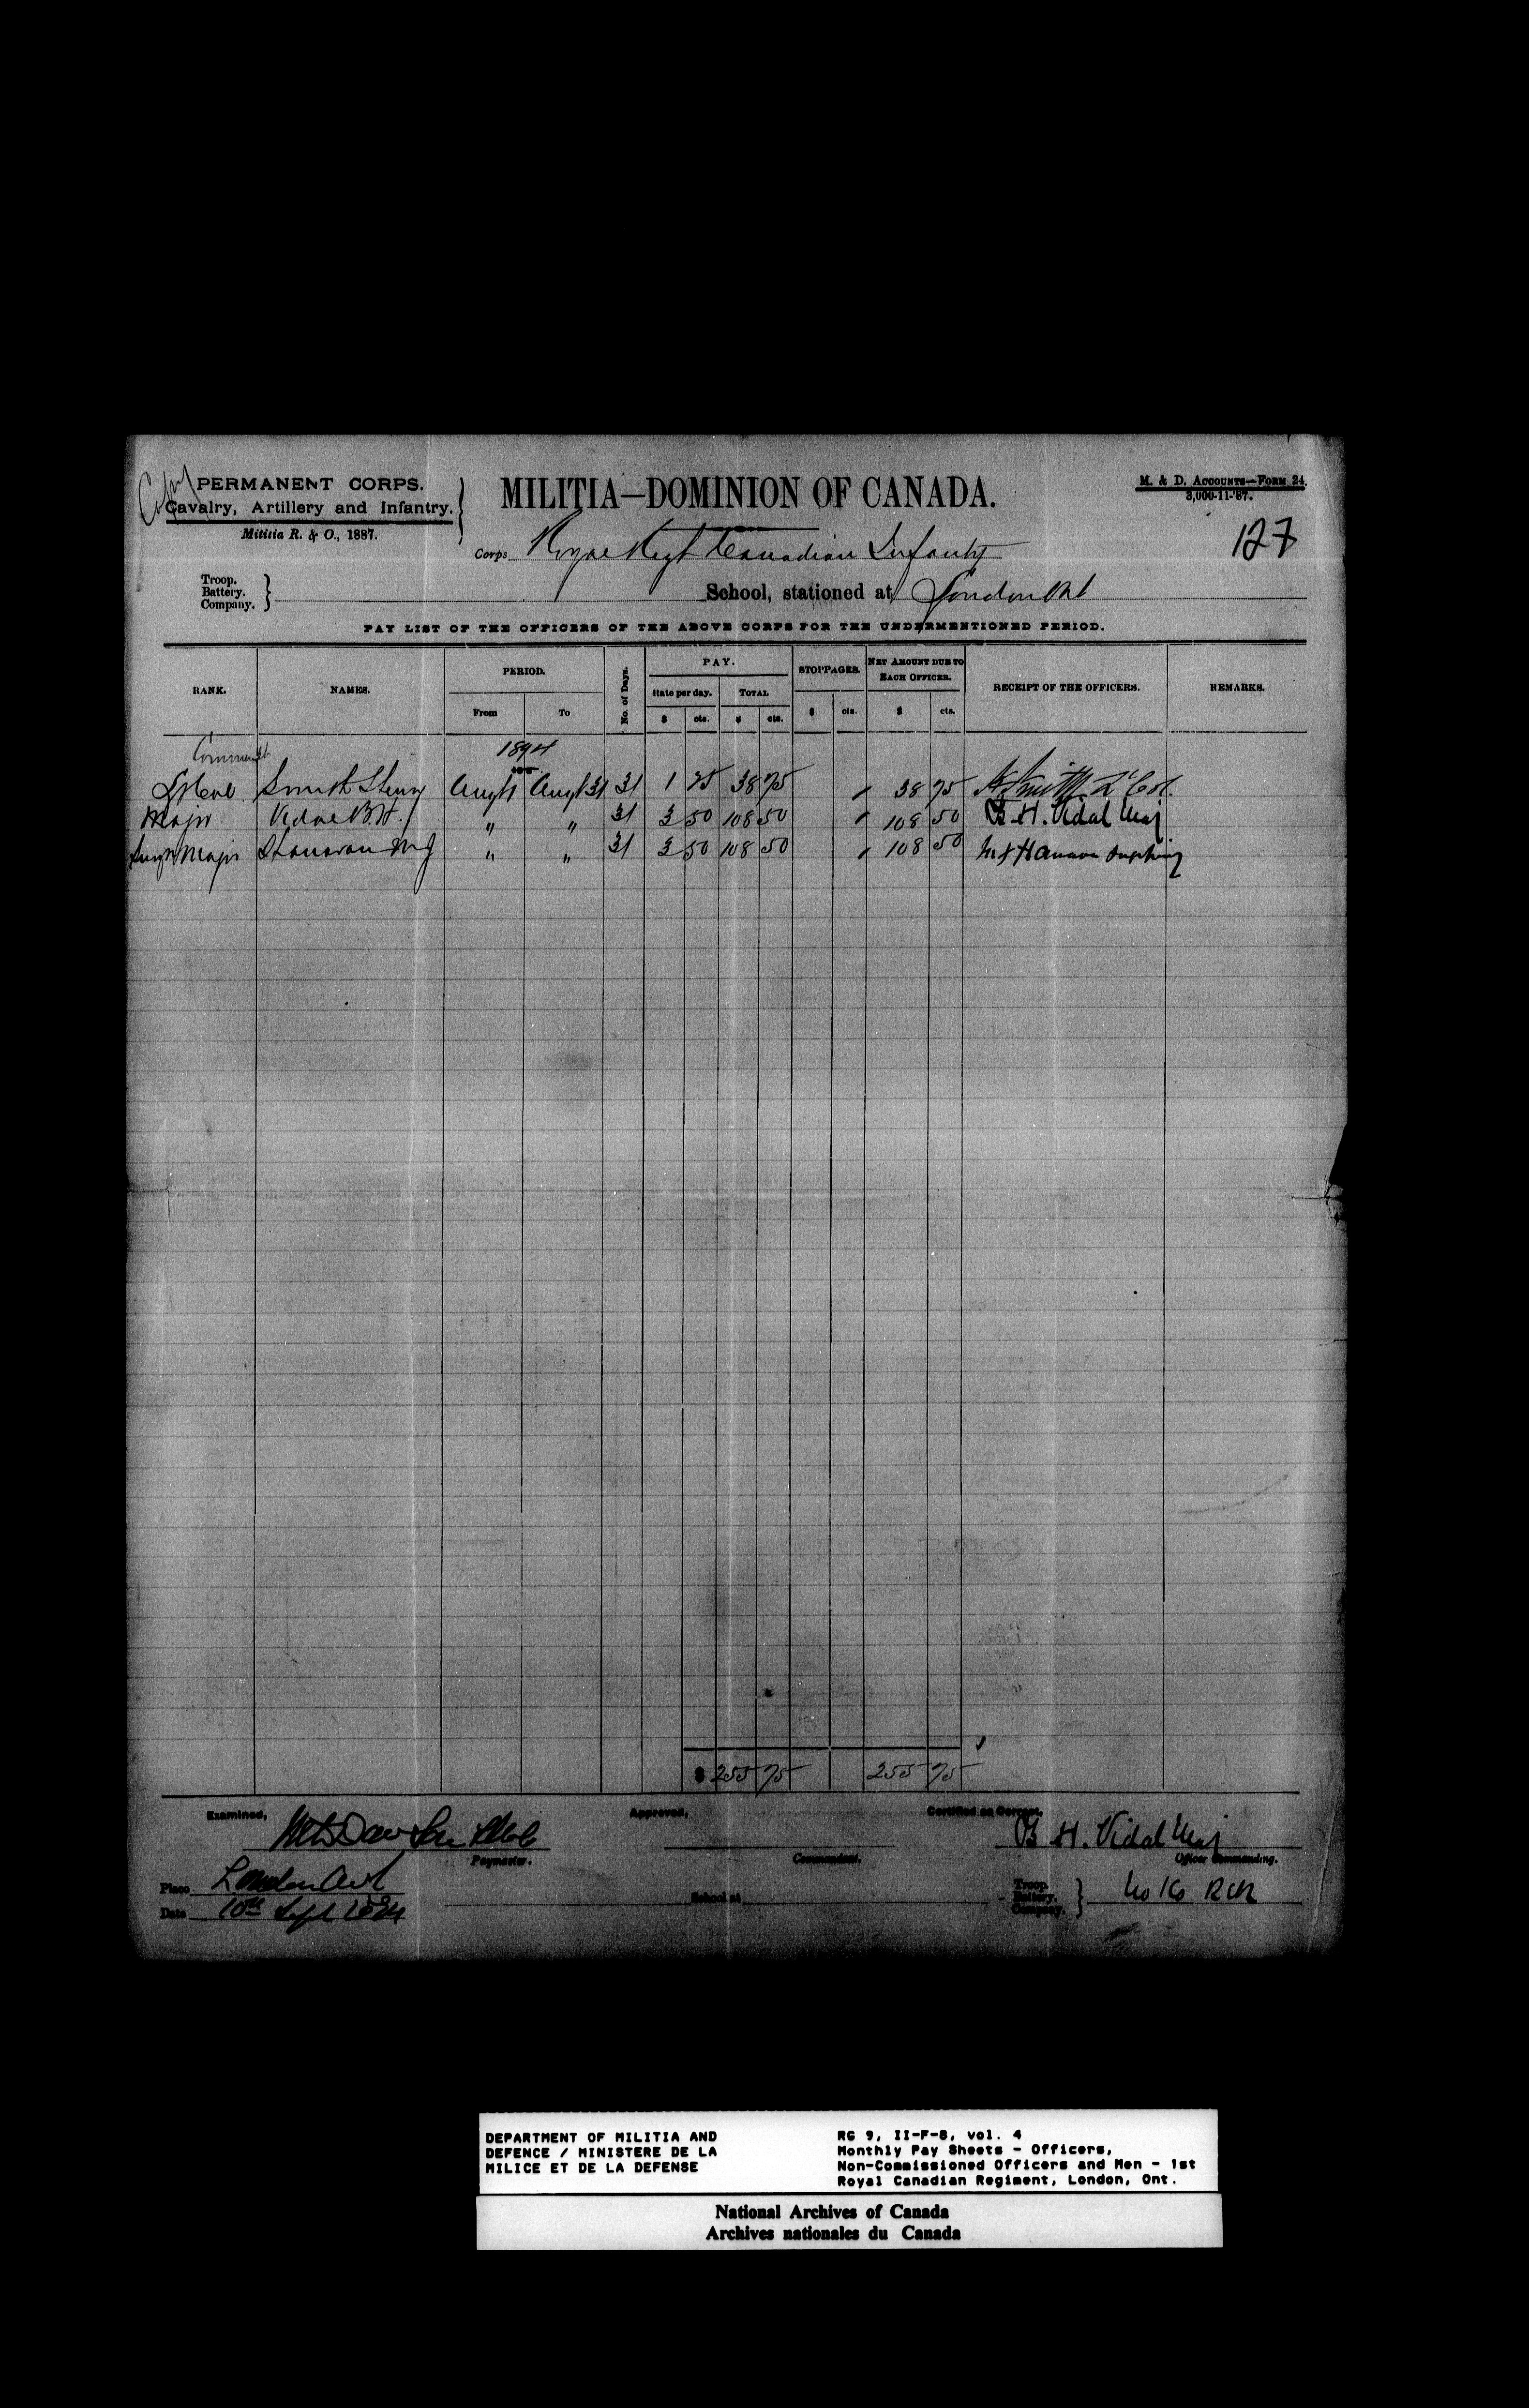 Copy
PERMANENT CORPS.
Cavalry, Artillery and Infantry.
Militia R. & O., 1887.
MILITIA—DOMINION OF CANADA.
M. & D. Accounts—Form 24.
3,000-11-'87.
127
Corps Royal Regt Canadian Infantry
Troop.
Battery.
Company.
School, stationed at London Ont
PAY LIST OF THE OFFICERS OF THE ABOVE CORPS FOR THE UNDERMENTIONED PERIOD.
RANK. NAMES. PERIOD. From To No. of Days. PAY. Rate per day. $ cts. TOTAL $ cts. STOPPAGES. $ cts. NET AMOUNT DUE TO EACH OFFICER. $ cts. RECEIPT OF THE OFFICERS. REMARKS.
Commandt 1894
Lt Col Smith Henry Augt 1 Augt 31 31 1 25 38 75 38 75 H Smith Lt Col.
Major Vidal B.H. " " 31 3 50 108 50 108 50 B H. Vidal Maj
Surgn Major Hanavan M J " " 31 3 50 108 50 108 50 M J Hanavan
$ 255 75 255 75
Examined, Approved, Certified as Correct,
B H. Vidal Maj
Paymaster. Commandant. Officer Commanding.
Place London Ont
School at
Troop.
Battery.
Company.
Date 10th Sept 1894
DEPARTMENT OF MILITIA AND
DEFENCE / MINISTERE DE LA
MILICE ET DE LA DEFENSE
RG 9, II-F-8, vol. 4
Monthly Pay Sheets - Officers,
Non-Commissioned Officers and Men - 1st
Royal Canadian Regiment, London, Ont.
National Archives of Canada
Archives nationales du Canada